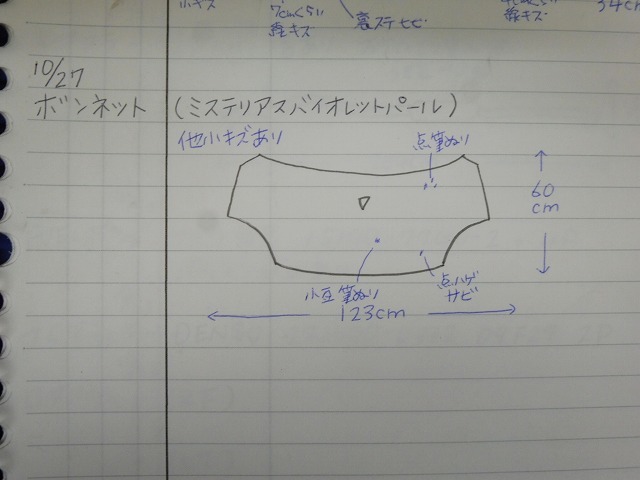 小キズ
7cmくらい
線キズ
裏ステサビ
線キズ
34cm
10/27
ボンネット (ミステリアスバイオレットパール)
他小キズあり
点筆ぬり
60
cm
小豆筆ぬり
点ハゲ
サビ
123cm